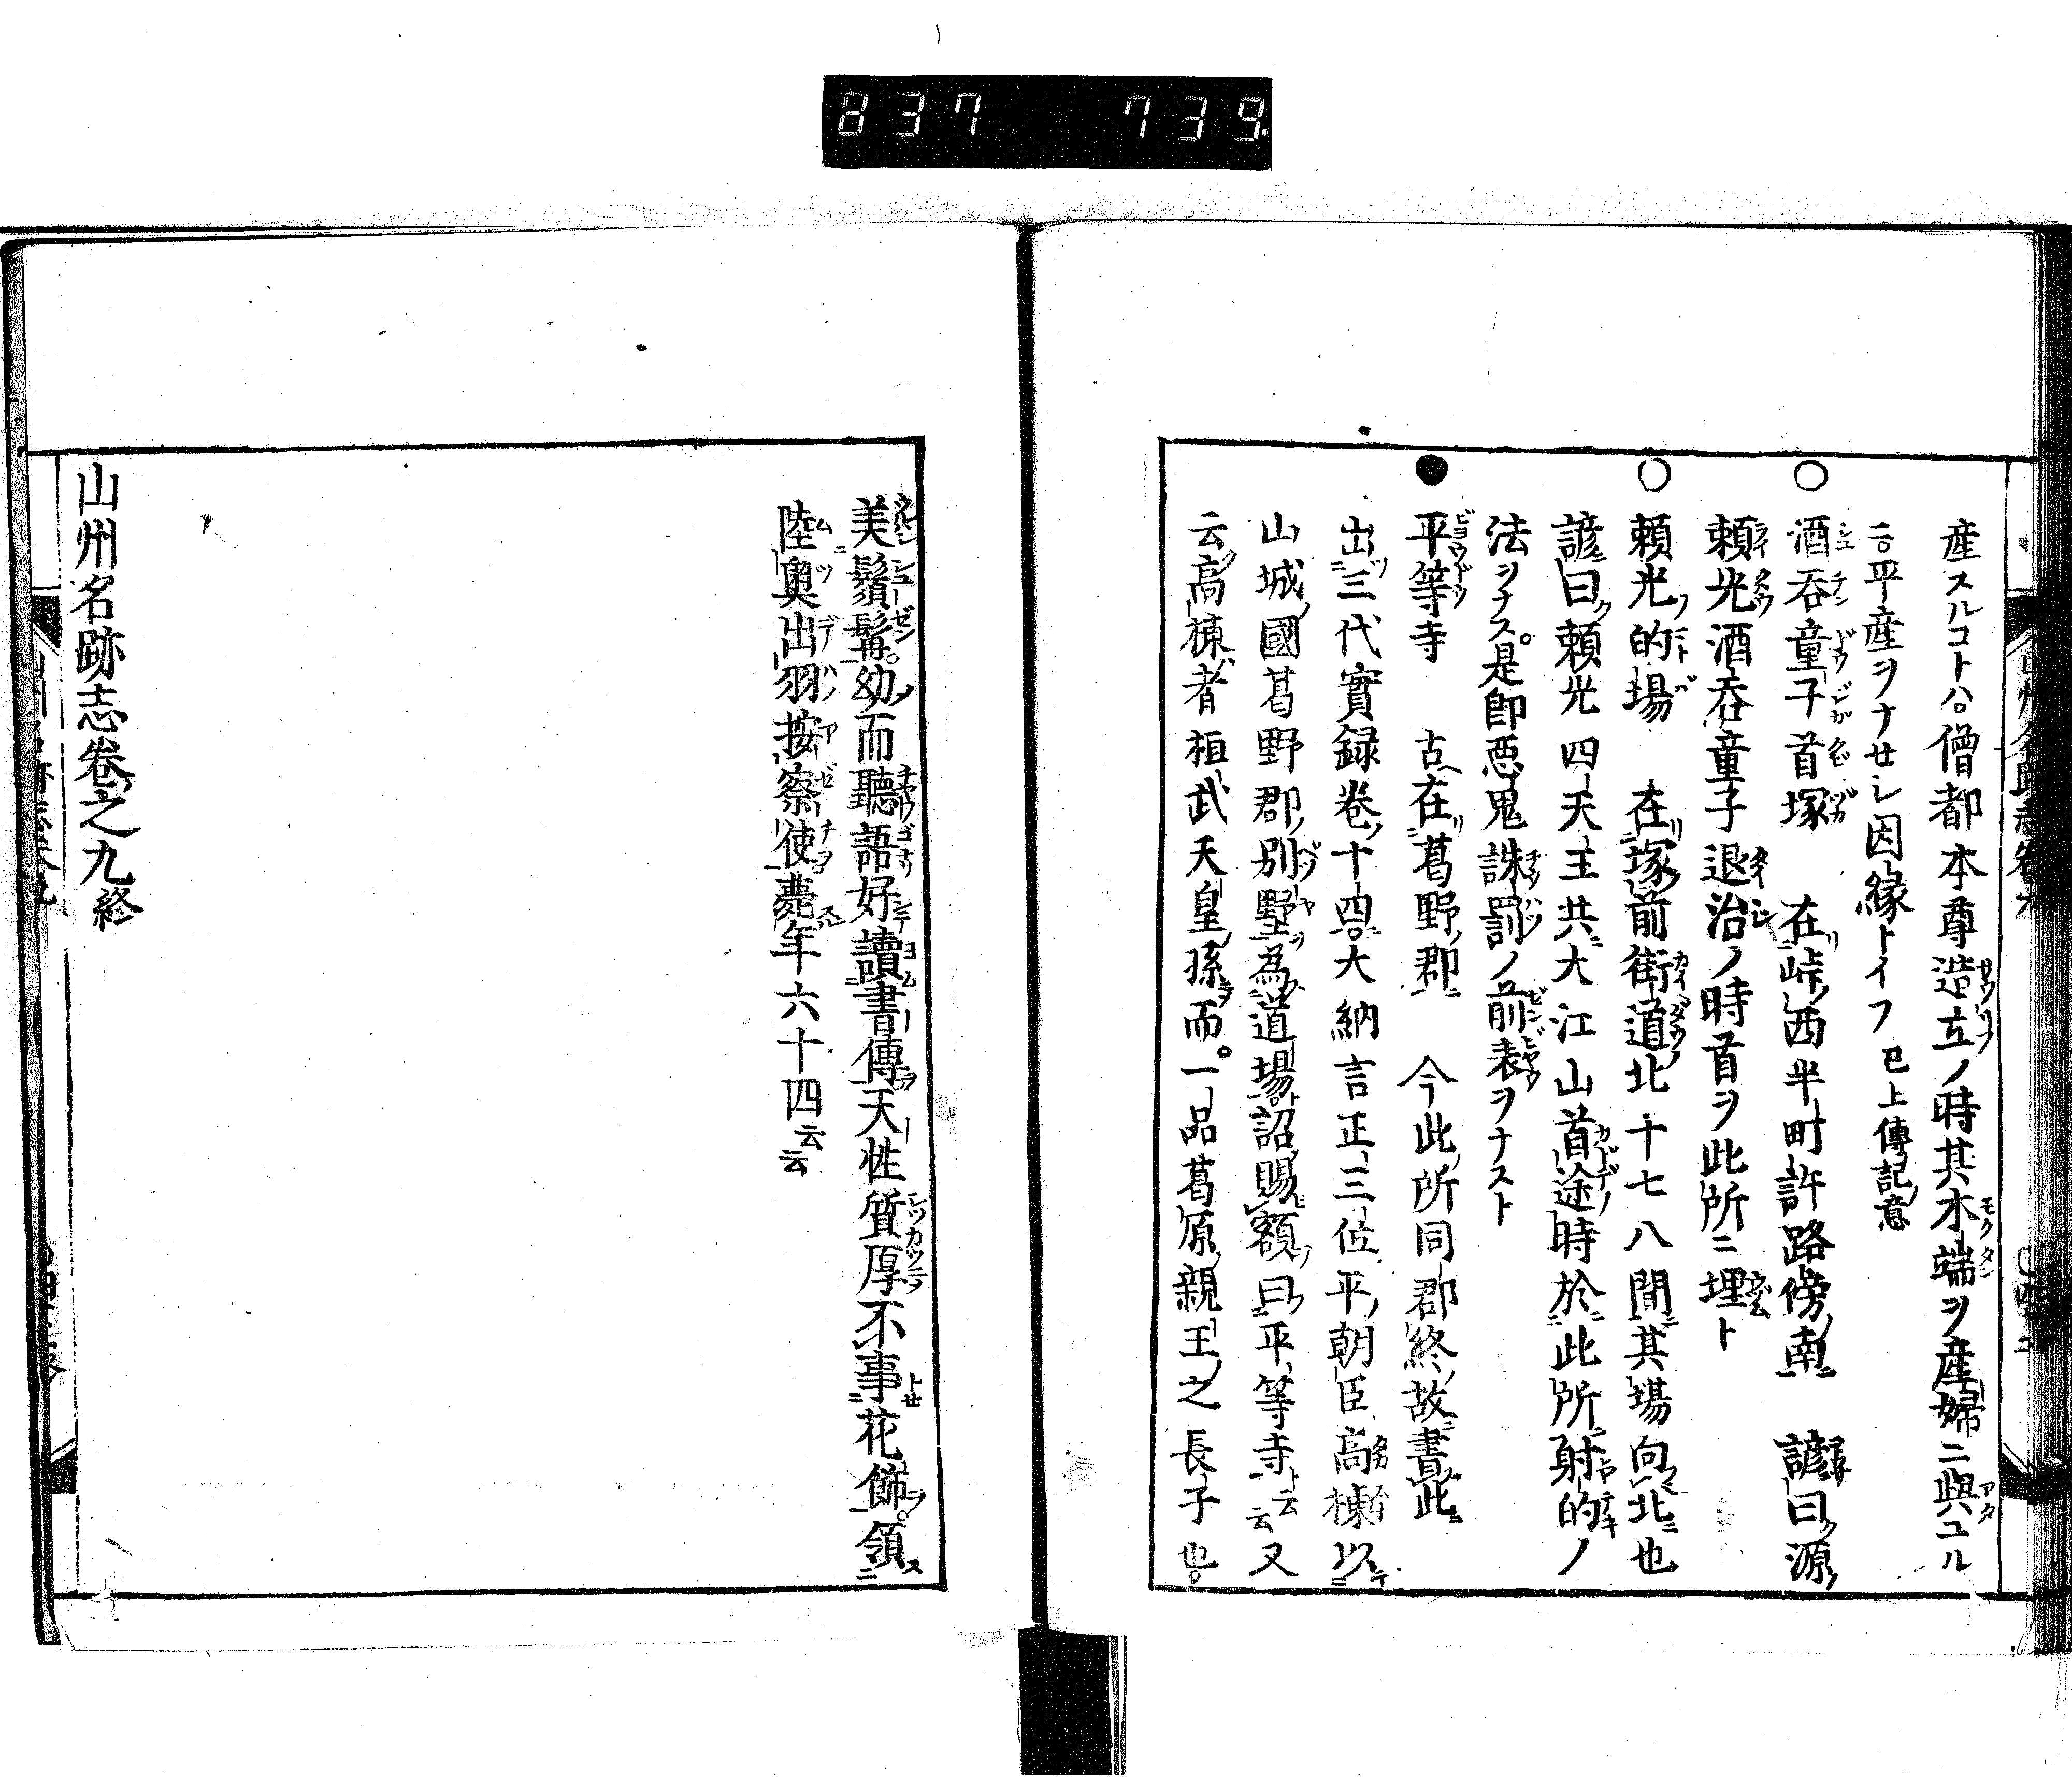 837 739
産スルコトハ。僧都本尊造立ノ時其木端ヲ産婦ニ與ユル
ニ。平産ヲナセシ因縁トイフ 已上傳記ノ意
○酒呑童子首塚 在峠西半町許路傍南 諺曰源
頼光酒呑童子退治ノ時首ヲ此所ニ埋ト
○頼光的場 在塚前街道北十七八間其場向北也
諺曰頼光四天王共大江山首途時於此所射的ノ
法ヲナス。是即悪鬼誅罰ノ前表ヲナスト
●平等寺 古在葛野郡 今此所同郡終故書此
出三代實録巻十四。大納言正三位平朝臣高棟以
山城國葛野郡別墅為道場。詔賜額曰平等寺云云又
云高棟者桓武天皇孫而。一品葛原親王之長子也。
美鬚髯。幼而聽語好讀書傳天性質厚不事花飾。領
陸奥出羽按察使薨年六十四云云
山州名跡志巻之九終